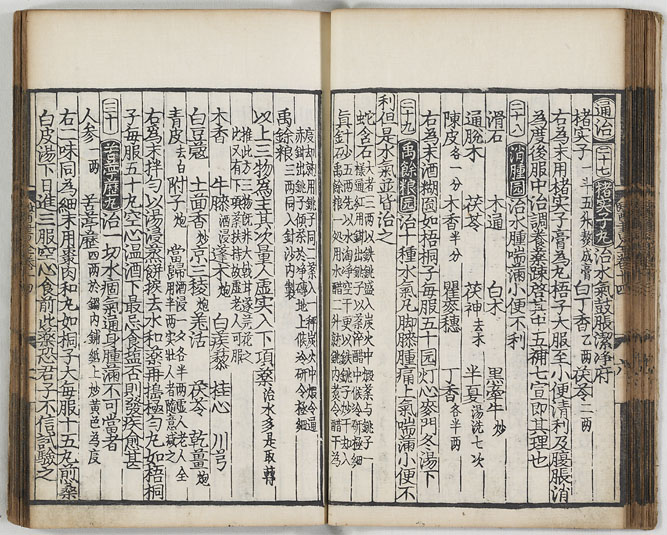 通治 二十七 楮实子丸 治水氣鼓脹潔淨府
楮实子 一斗五升熬成膏 白丁香 乙兩 茯苓 二兩
右為末用楮实子膏為丸梧子大服至小便清利及腹脹消
為度後服中治調養藥疎啓其中五補七宣即其理也
二十八 消腫圓 治水腫喘滿小便不利
滑石 木通 白术 黑牽牛 炒
通脱木 茯苓 茯神 去木 半夏 湯洗七次
陳皮 各一分 木香 半分 瞿麥穗 丁香 各半兩
右為末酒糊圆如梧桐子每服五十园灯心麥門冬湯下
二十九 禹餘粮园 治十種水氣凡脚膝腫痛上氣喘滿小便不
利但是水氣並皆治之
蛇含石 大者三兩以鉄銚盛入炭火中煅藥与銚子一
樣通紅用鉗出銚子以藥淬醋中候冷研極細
真針砂 五兩先以水淘淨
禹餘粮 三兩同入針沙内製
以上三物為主其次量人虚实入下項藥 治水多是取轉
木香 牛膝 酒浸 蓬术 炮 白蒺藜 桂心 川芎
白豆蔲 土茴香 炒 京三稜 炮 羌活 茯苓 乾薑 炮
青皮 去白 附子 炮 當歸 酒浸
右為末拌勻以湯浸蒸餅捩去水和藥再搗極勻丸如梧桐
子每服五十丸空心温酒下最忌食塩否則發疾愈甚
三十 苦葶歴丸 治一切水痼氣通身腫滿不可當者
人参 一兩 苦葶歴 四兩於鍋内鋪紙上炒黄色為度
右二味同為細末用棗肉和丸如桐子大每服十五丸煎桑
白皮湯下日進三服空心食前此藥恐君子不信試驗之